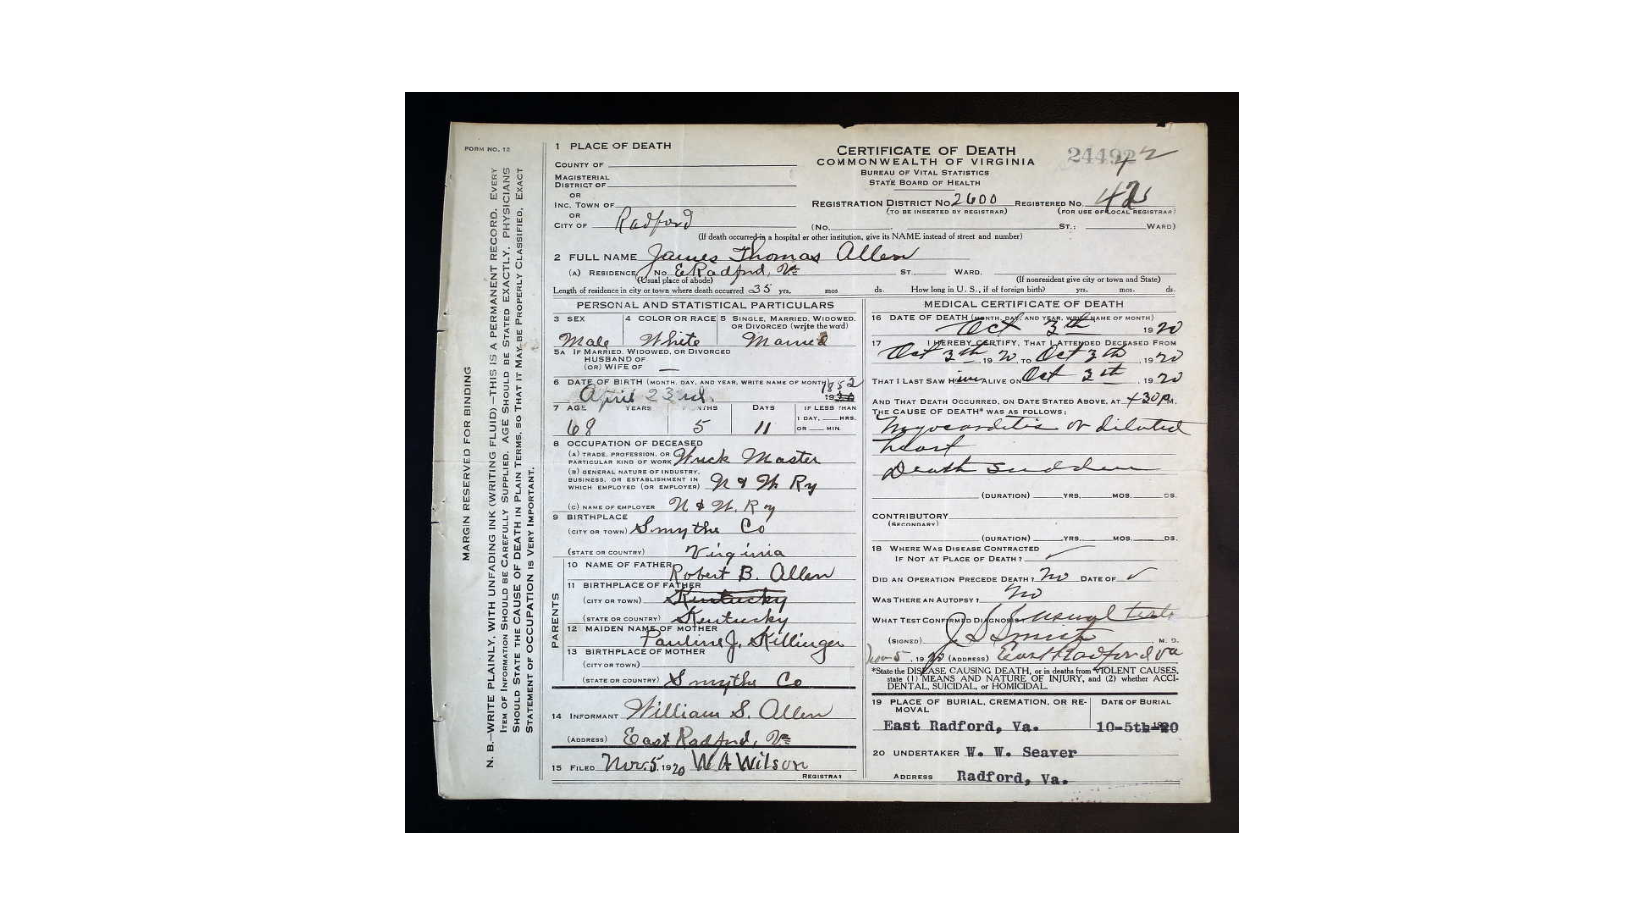 FORM NO. 12
MARGIN RESERVED FOR BINDING
N. B.—WRITE PLAINLY, WITH UNFADING INK (WRITING FLUID)—THIS IS A PERMANENT RECORD. EVERY
ITEM OF INFORMATION SHOULD BE CAREFULLY SUPPLIED. AGE SHOULD BE STATED EXACTLY. PHYSICIANS
SHOULD STATE THE CAUSE OF DEATH IN PLAIN TERMS, SO THAT IT MAY BE PROPERLY CLASSIFIED. EXACT
STATEMENT OF OCCUPATION IS VERY IMPORTANT.
1 PLACE OF DEATH
COUNTY OF
MAGISTERIAL
DISTRICT OF
OR
INC. TOWN OF
OR
CITY OF Radford
CERTIFICATE OF DEATH
COMMONWEALTH OF VIRGINIA
BUREAU OF VITAL STATISTICS
STATE BOARD OF HEALTH
REGISTRATION DISTRICT NO. 2600 REGISTERED NO. 42
(TO BE INSERTED BY REGISTRAR) (FOR USE OF LOCAL REGISTRAR)
(No. ST.: WARD)
(If death occurred in a hospital or other institution, give its NAME instead of street and number)
2 FULL NAME James Thomas Allen
(A) RESIDENCE No. E Radford, Va ST. WARD.
(Usual place of abode) (If nonresident give city or town and State)
Length of residence in city or town where death occurred 35 yrs. mos ds. How long in U. S., if of foreign birth? yrs. mos. ds.
PERSONAL AND STATISTICAL PARTICULARS
3 SEX 4 COLOR OR RACE 5 SINGLE, MARRIED, WIDOWED,
OR DIVORCED (write the word)
Male White Married
5A IF MARRIED, WIDOWED, OR DIVORCED
HUSBAND OF
(OR) WIFE OF —
6 DATE OF BIRTH (MONTH, DAY, AND YEAR, WRITE NAME OF MONTH) 1852
April 23rd.
7 AGE YEARS MONTHS DAYS IF LESS THAN
1 DAY, HRS.
OR MIN.
68 5 11
8 OCCUPATION OF DECEASED
(A) TRADE, PROFESSION, OR
PARTICULAR KIND OF WORK Wreck Master
(B) GENERAL NATURE OF INDUSTRY,
BUSINESS, OR ESTABLISHMENT IN
WHICH EMPLOYED (OR EMPLOYER) N & W Ry
(C) NAME OF EMPLOYER N & W. Ry
9 BIRTHPLACE
(CITY OR TOWN) Smythe Co
(STATE OR COUNTRY) Virginia
PARENTS
10 NAME OF FATHER Robert B. Allen
11 BIRTHPLACE OF FATHER
(CITY OR TOWN) Kentucky
(STATE OR COUNTRY) Kentucky
12 MAIDEN NAME OF MOTHER Pauline J. Killinger
13 BIRTHPLACE OF MOTHER
(CITY OR TOWN)
(STATE OR COUNTRY) Smythe Co
14 INFORMANT William S. Allen
(ADDRESS) East Radford, Va
15 FILED Nov. 5, 1920 W A Wilson
REGISTRAR
MEDICAL CERTIFICATE OF DEATH
16 DATE OF DEATH (MONTH, DAY, AND YEAR, WRITE NAME OF MONTH)
Oct 3th 1920
17 I HEREBY CERTIFY, THAT I ATTENDED DECEASED FROM
Oct 3th, 1920 TO Oct 3th, 1920
THAT I LAST SAW HIM ALIVE ON Oct 3th, 1920
AND THAT DEATH OCCURRED, ON DATE STATED ABOVE, AT 30 P M.
THE CAUSE OF DEATH* WAS AS FOLLOWS:
Myocarditis or dilated
heart
Death sudden
(DURATION) YRS. MOS. DS.
CONTRIBUTORY
(SECONDARY)
(DURATION) YRS. MOS. DS.
18 WHERE WAS DISEASE CONTRACTED
IF NOT AT PLACE OF DEATH?
DID AN OPERATION PRECEDE DEATH? No DATE OF
WAS THERE AN AUTOPSY? No
WHAT TEST CONFIRMED DIAGNOSIS? usual tests
(SIGNED) M. D.
Nov 5, 1920 (ADDRESS) East Radford Va
*State the DISEASE CAUSING DEATH, or in deaths from VIOLENT CAUSES,
state (1) MEANS AND NATURE OF INJURY, and (2) whether ACCI-
DENTAL, SUICIDAL, or HOMICIDAL.
19 PLACE OF BURIAL, CREMATION, OR RE- DATE OF BURIAL
MOVAL
East Radford, Va. 10-5th-20
20 UNDERTAKER W. W. Seaver
ADDRESS Radford, Va.